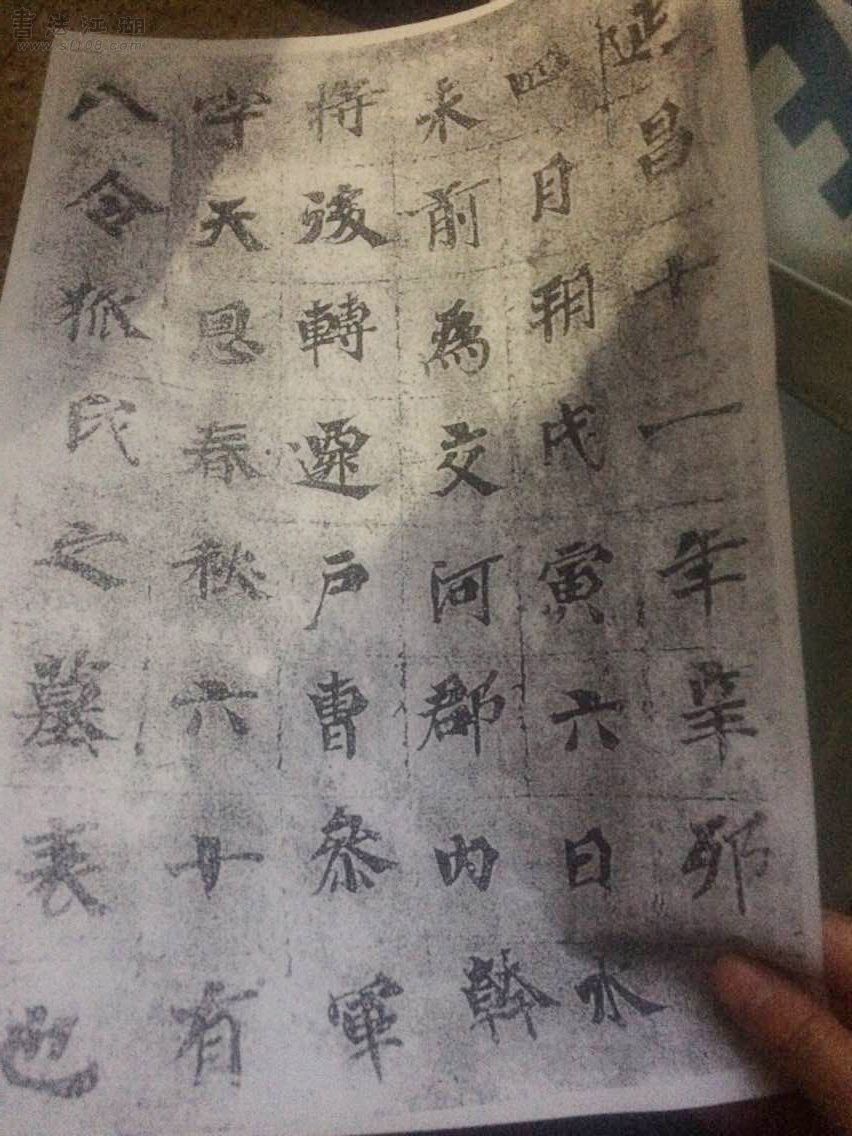 書法江湖
www.sf108.com
延昌十一年辛卯
四月朔戊寅六日水
未前爲交河郡內幹
將後轉遷戶曹參軍
字天恩春秋六十有
八令狐氏之墓表也